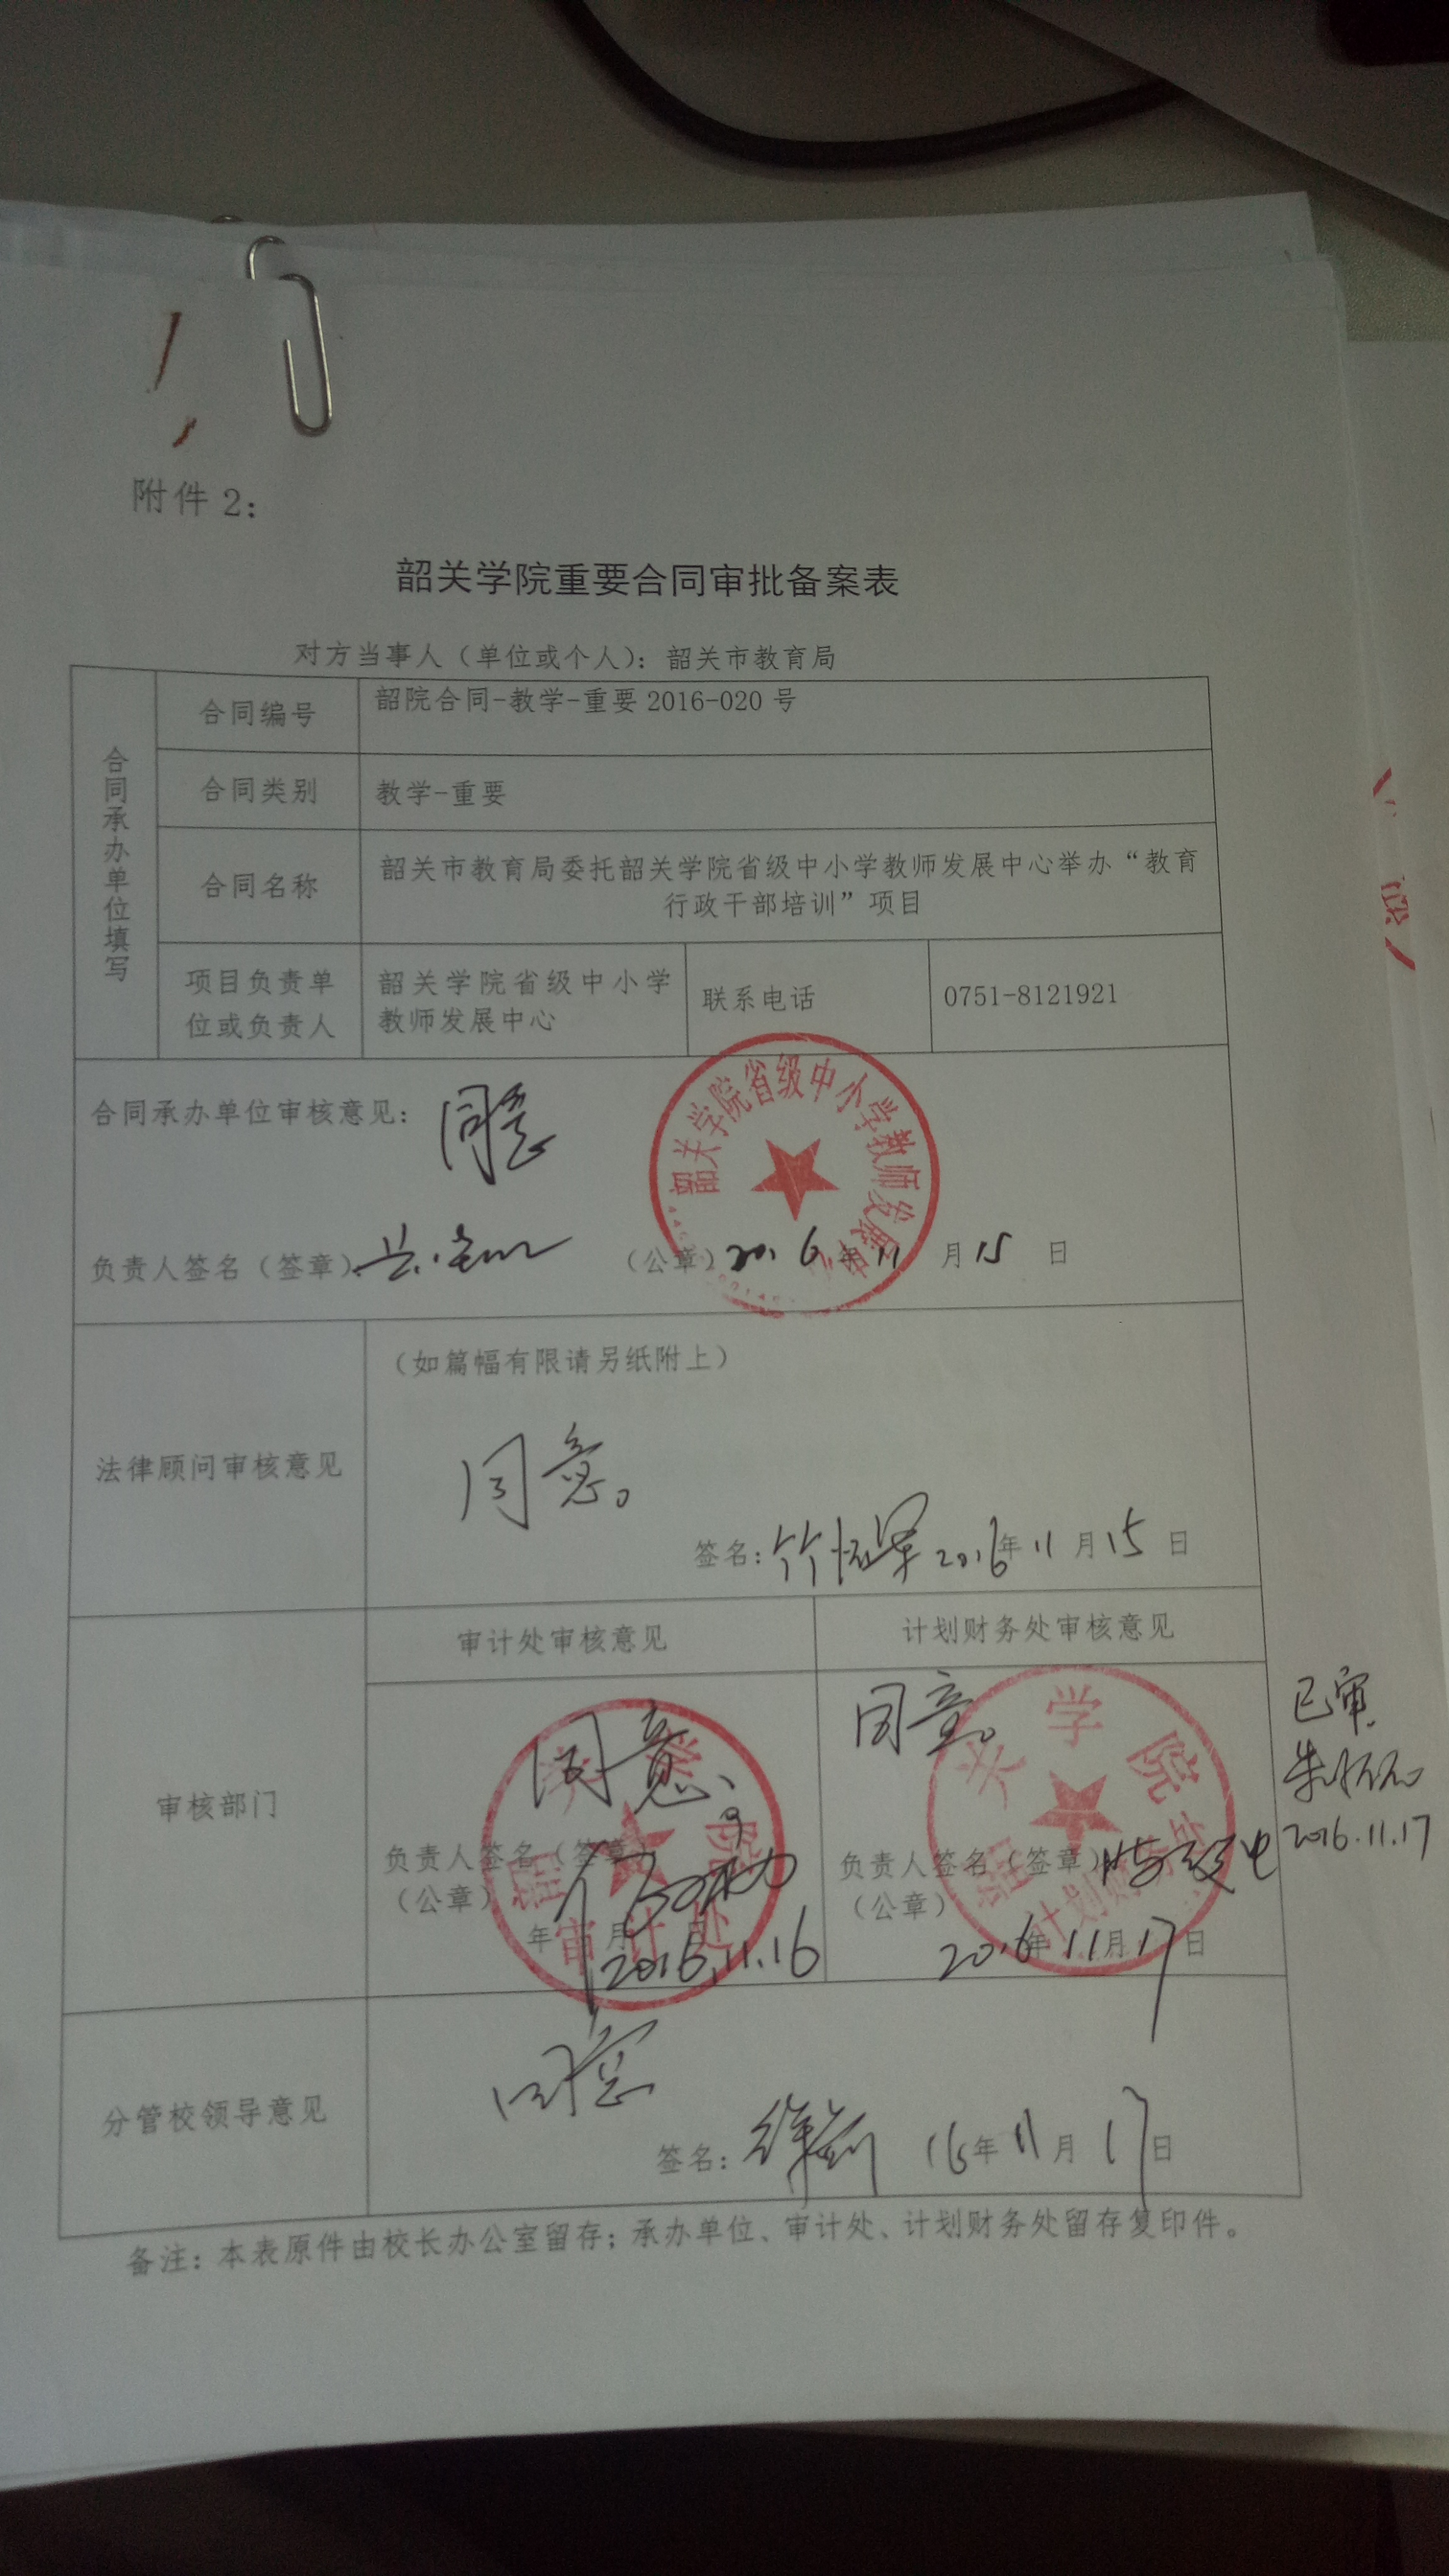 附件 2：
韶关学院重要合同审批备案表
对方当事人（单位或个人）：韶关市教育局
合同承办单位填写
合同编号
韶院合同-教学-重要 2016-020 号
合同类别
教学-重要
合同名称
韶关市教育局委托韶关学院省级中小学教师发展中心举办“教育
行政干部培训”项目
项目负责单
位或负责人
韶关学院省级中小学
教师发展中心
联系电话
0751-8121921
合同承办单位审核意见：同意
韶关学院省级中小学教师发展中心
负责人签名（签章） （公章）2016年11月15日
法律顾问审核意见
（如篇幅有限请另纸附上）
同意。
签名： 2016年11月15日
审核部门
审计处审核意见
同意。
负责人签名（签章）
（公章）
年 月 日
2016.11.16
韶关学院
审计处
计划财务处审核意见
同意。
负责人签名（签章）
（公章）
2016年11月17日
韶关学院
计划财务处
已审.
2016.11.17
分管校领导意见
同意
签名： 16年11月17日
备注：本表原件由校长办公室留存；承办单位、审计处、计划财务处留存复印件。